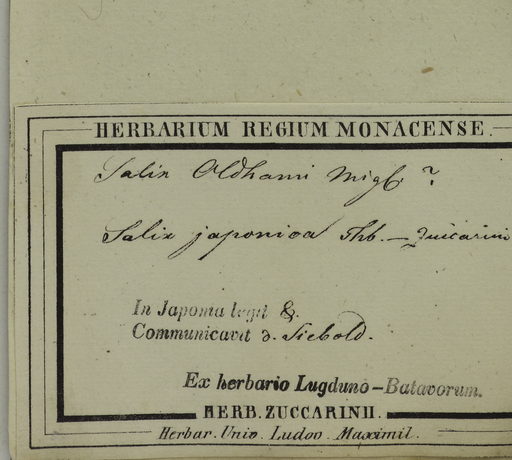 HERBARIUM REGIUM MONACENSE.
Salix Oldhami Miq. ?
Salix japonica Thb. — Zuccarini
In Japonia legit &.
Communicavit d. Siebold.
Ex herbario Lugduno-Batavorum.
HERB. ZUCCARINII.
Herbar. Univ. Ludov. Maximil.